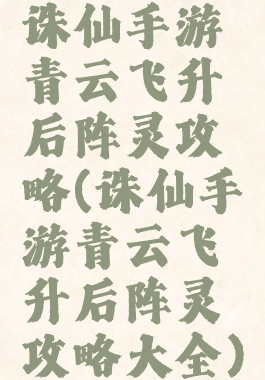 诛仙手游
青云飞升
后阵灵攻
略(诛仙手
游青云飞
升后阵灵
攻略大全)